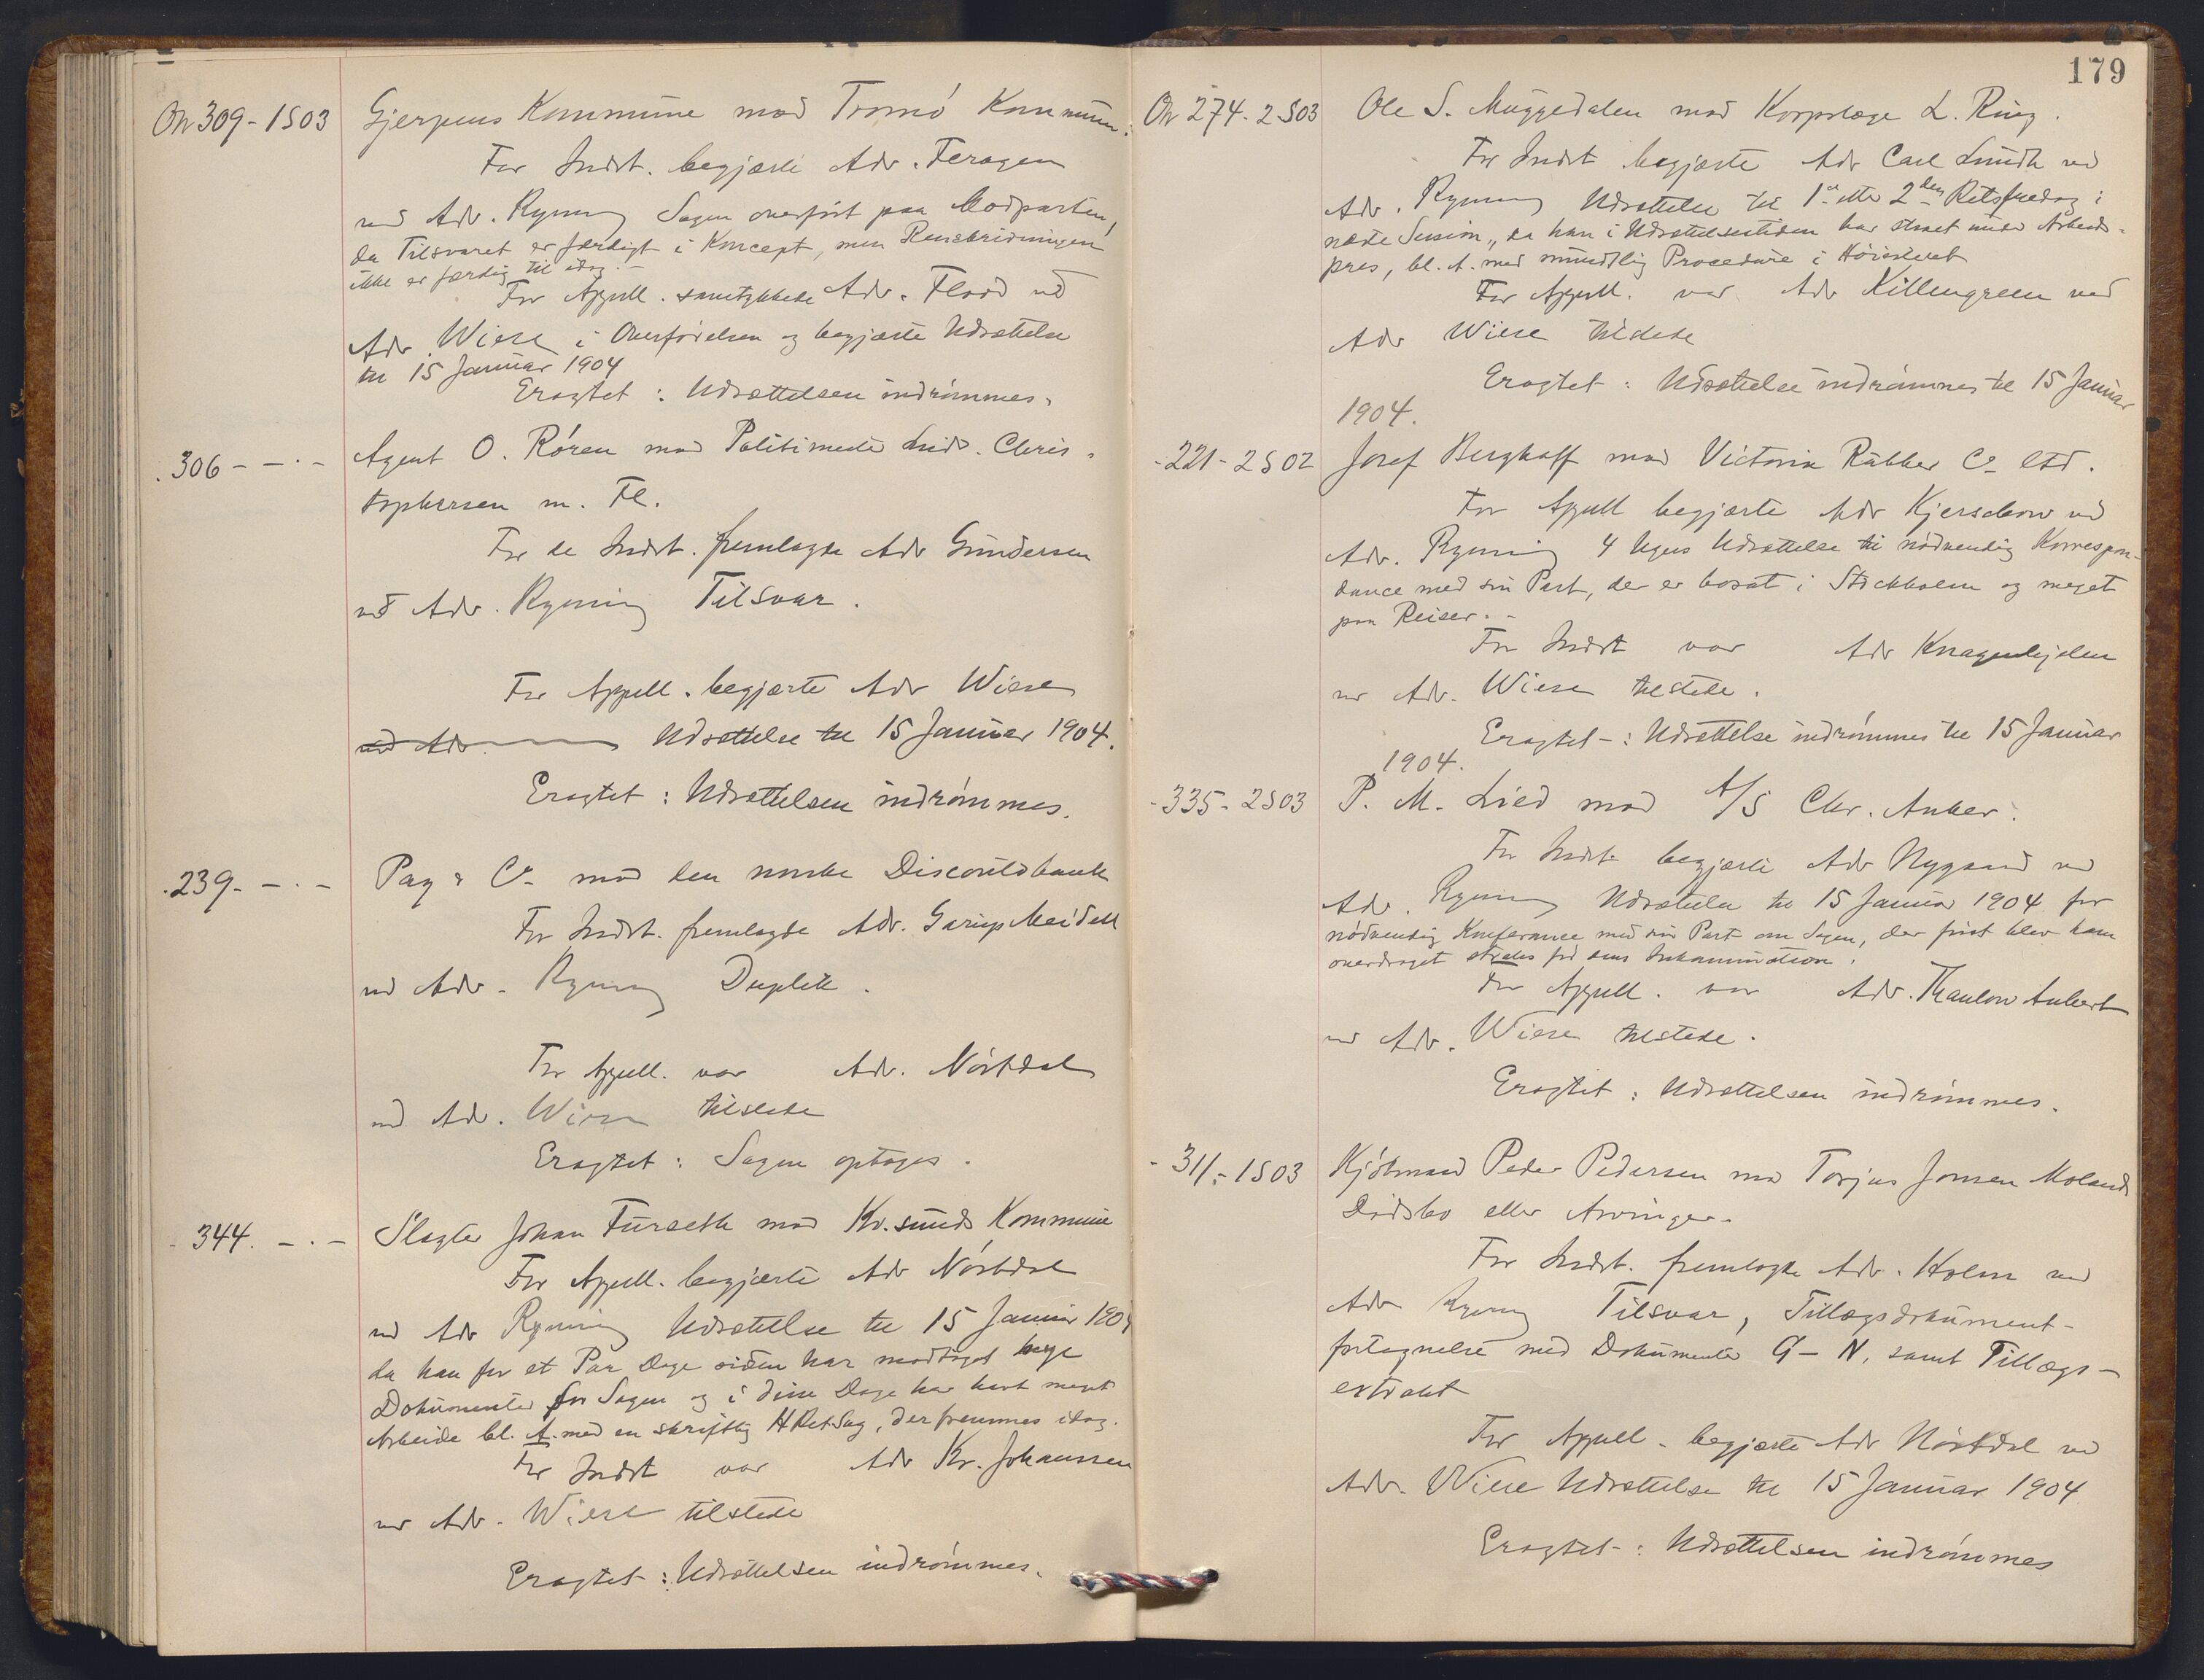 On 309 - 1 S 03 Gjerpens Kommune mod Tromö Kommune.
For Indst. begjærte Adv. Feragen
ved Adv. Ryning Sagen overført paa Modparten,
da Tilsvaret er færdigt i Koncept, men Renskrivningen
ikke er færdig til idag. -
For Appell. samtykkede Adv. Flood ved
Adv. Wiese i Overførelsen og begjærte Udsættelse
til 15 Januar 1904
Eragtet: Udsættelsen indrømmes.
. 306 - - . - Agent O. Røren mod Politimester Chris-
tophersen m. Fl.
For de Indst. fremlagde Adv Gundersen
ved Adv. Ryning Tilsvar.
For Appell. begjærte Adv Wiese
ved Adv. Udsættelse til 15 Januar 1904.
Eragtet: Udsættelsen indrømmes.
. 239. - . - Pay & Co mod den norske Discontobank
For Indst. fremlagde Adv. Garup Meidell
ved Adv. Ryning Duplik.
For Appell. var Adv. Nörstdal
ved Adv. Wiese tilstede
Eragtet: Sagen optages.
- 344. - . - Slagter Johan Furseth mod Kr.sunds Kommune
For Appell. begjærte Adv Nörstdal
ved Adv Ryning Udsættelse til 15 Januar 1904
da han for et Par Dage siden har modtaget nye
Dokumenter for Sagen og i disse Dage har havt meget
Arbeide bl. A. med en skriftlig HRetsSag, der fremmes idag.
For Indst var Adv Kr. Johanssen
ved Adv. Wiese tilstede
Eragtet: Udsættelsen indrømmes.
179
On 274. 2 S 03 Ole S. Muggedalen mod Korpslæge L. Ring.
For Indst begjærte Adv Carl Lundh ved
Adv. Ryning Udsættelse til 1ste eller 2den Retsfredag i
næste Session, da han i Udsættelsestiden har staaet under Arbeids-
pres, bl. A. med mundtlig Procedure i Høiesteret
For Appell. var Adv Killengreen ved
Adv Wiese tilstede
Eragtet: Udsættelse indrømmes til 15 Januar
1904.
- 221 - 2 S 02 Josef Berghoff mod Victoria Rubber Co Ltd.
For Appell begjærte Adv Kjerschow ved
Adv. Ryning 4 Ugers Udsættelse til nödvendig Korrespon-
dance med sin Part, der er bosat i Stockholm og meget
paa Reiser. -
For Indst var Adv Knagenhjelm
ved Adv. Wiese tilstede.
Eragtet: Udsættelse indrømmes til 15 Januar
1904.
- 335 - 2 S 03 P. M. Lied mod A/S Chr. Anker.
For Indst. begjærte Adv Nygaard ved
Adv. Ryning Udsættelse til 15 Januar 1904 for
nödvendig Konferance med sin Part om Sagen, der först blev ham
overdraget strax før dens Inkamination.
For Appell. var Adv. Thaulow Aubert
ved Adv. Wiese tilstede.
Eragtet: Udsættelsen indrømmes.
- 311. - 1 S 03 Kjöbmand Peder Pedersen mod Torjus Jonsen Molands
Dödsbo eller Arvinger.
For Indst. fremlagde Adv. Holm ved
Adv Ryning Tilsvar, Tillægsdokument-
fortegnelse med Dokumenter G - N, samt Tillægs-
extrakt
For Appell. begjærte Adv Nörstdal ved
Adv. Wiese Udsættelse til 15 Januar 1904
Eragtet: Udsættelsen indrømmes